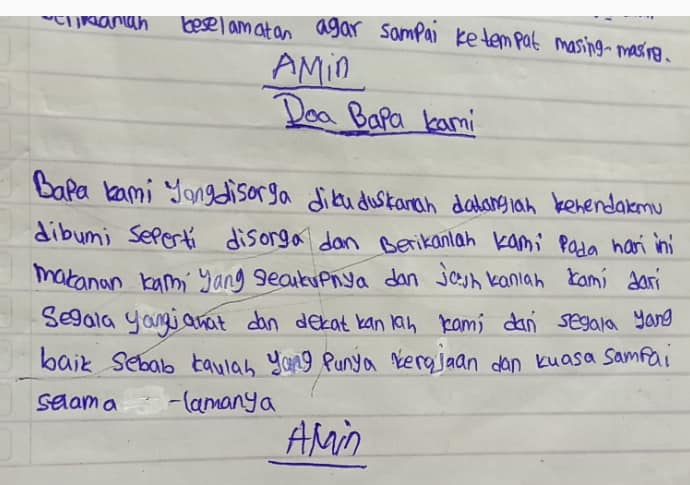 keselamatan agar sampai ketempat masing-masing.
AMin
Doa Bapa kami
Bapa kami yangdisorga dikuduskanah datanglah kehendakmu
dibumi seperti disorga dan Berikanlah kami pada hari ini
makanan kami yang secukupnya dan jauhkanlah kami dari
Segala yangjahat dan dekatkanlah kami dari segala yang
baik Sebab kaulah yang Punya kerajaan dan kuasa sampai
selama -lamanya
AMin